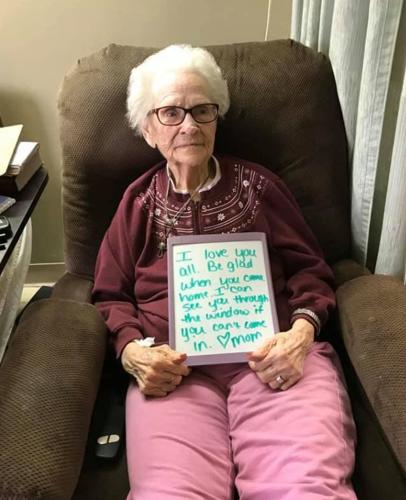 I love you
all. Be glad
when you come
home. I can
see you through
the window if
you can't come
in. ♡ mom